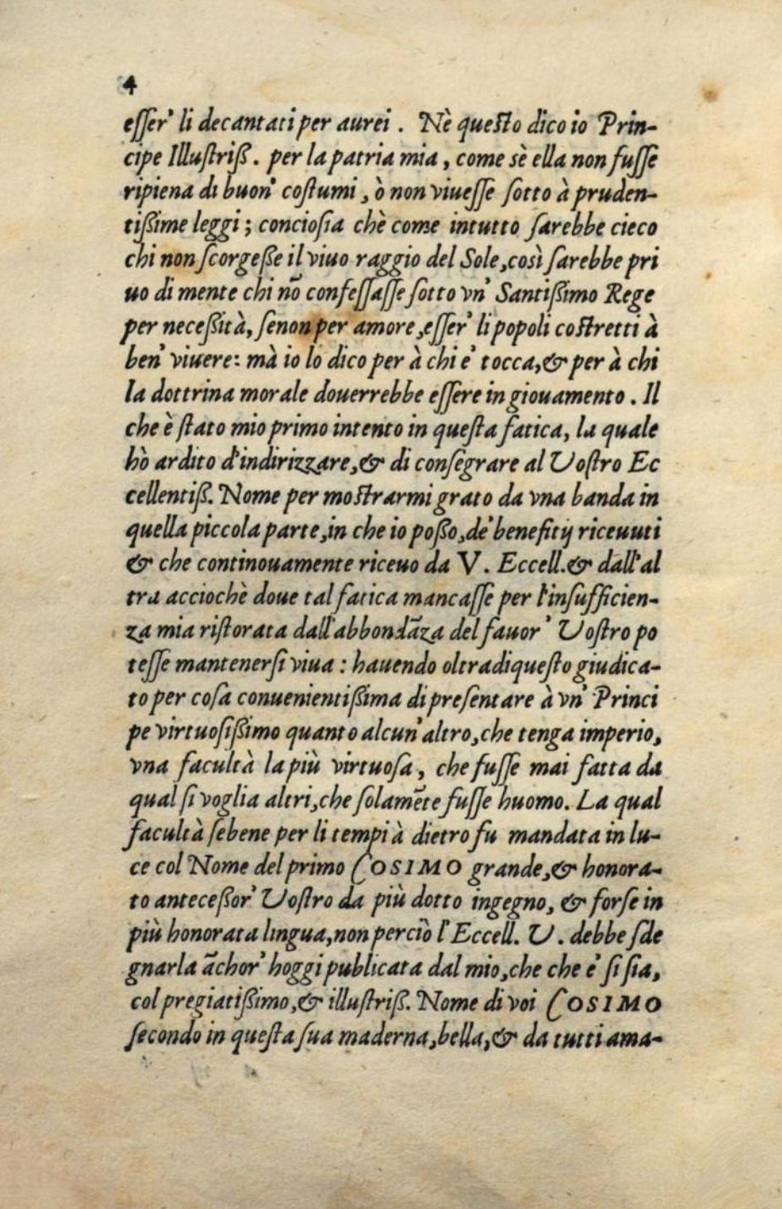 4
eſſer' li decantati per aurei. Nè queſto dico io Prin-
cipe Illuſtriß. per la patria mia, come sè ella non fuſſe
ripiena di buon' coſtumi, ò non viueſſe ſotto à pruden-
tißime leggi; concioſia chè come intutto ſarebbe cieco
chi non ſcorgeße il viuo raggio del Sole, così ſarebbe pri
uo di mente chi nõ confeſſaſſe ſotto vn' Santißimo Rege
per neceßità, ſenon per amore, eſſer' li popoli coſtretti à
ben' viuere: mà io lo dico per à chi e' tocca, & per à chi
la dottrina morale douerrebbe eſſere in giouamento. Il
che è ſtato mio primo intento in queſta fatica, la quale
hò ardito d'indirizzare, & di conſegrare al Uoſtro Ec
cellentiß. Nome per moſtrarmi grato da vna banda in
quella piccola parte, in che io poßo, de' benefitij riceuuti
& che continouamente riceuo da V. Eccell. & dall'al
tra acciochè doue tal fatica mancaſſe per l'inſufficien-
za mia riſtorata dall'abbondãza del fauor' Uoſtro po
teſſe mantenerſi viua: hauendo oltradiqueſto giudica-
to per coſa conuenientißima di preſentare à vn' Princi
pe virtuoſißimo quanto alcun'altro, che tenga imperio,
vna facultà la più virtuoſa, che fuſſe mai fatta da
qual ſi voglia altri, che ſolamẽte fuſſe huomo. La qual
facultà ſebene per li tempi à dietro fu mandata in lu-
ce col Nome del primo COSIMO grande, & honora-
to anteceßor' Uoſtro da più dotto ingegno, & forſe in
più honorata lingua, non perciò l'Eccell. U. debbe ſde
gnarla ãchor' hoggi publicata dal mio, che che e' ſi ſia,
col pregiatißimo, & illuſtriß. Nome di voi COSIMO
ſecondo in queſta ſua maderna, bella, & da tutti ama-